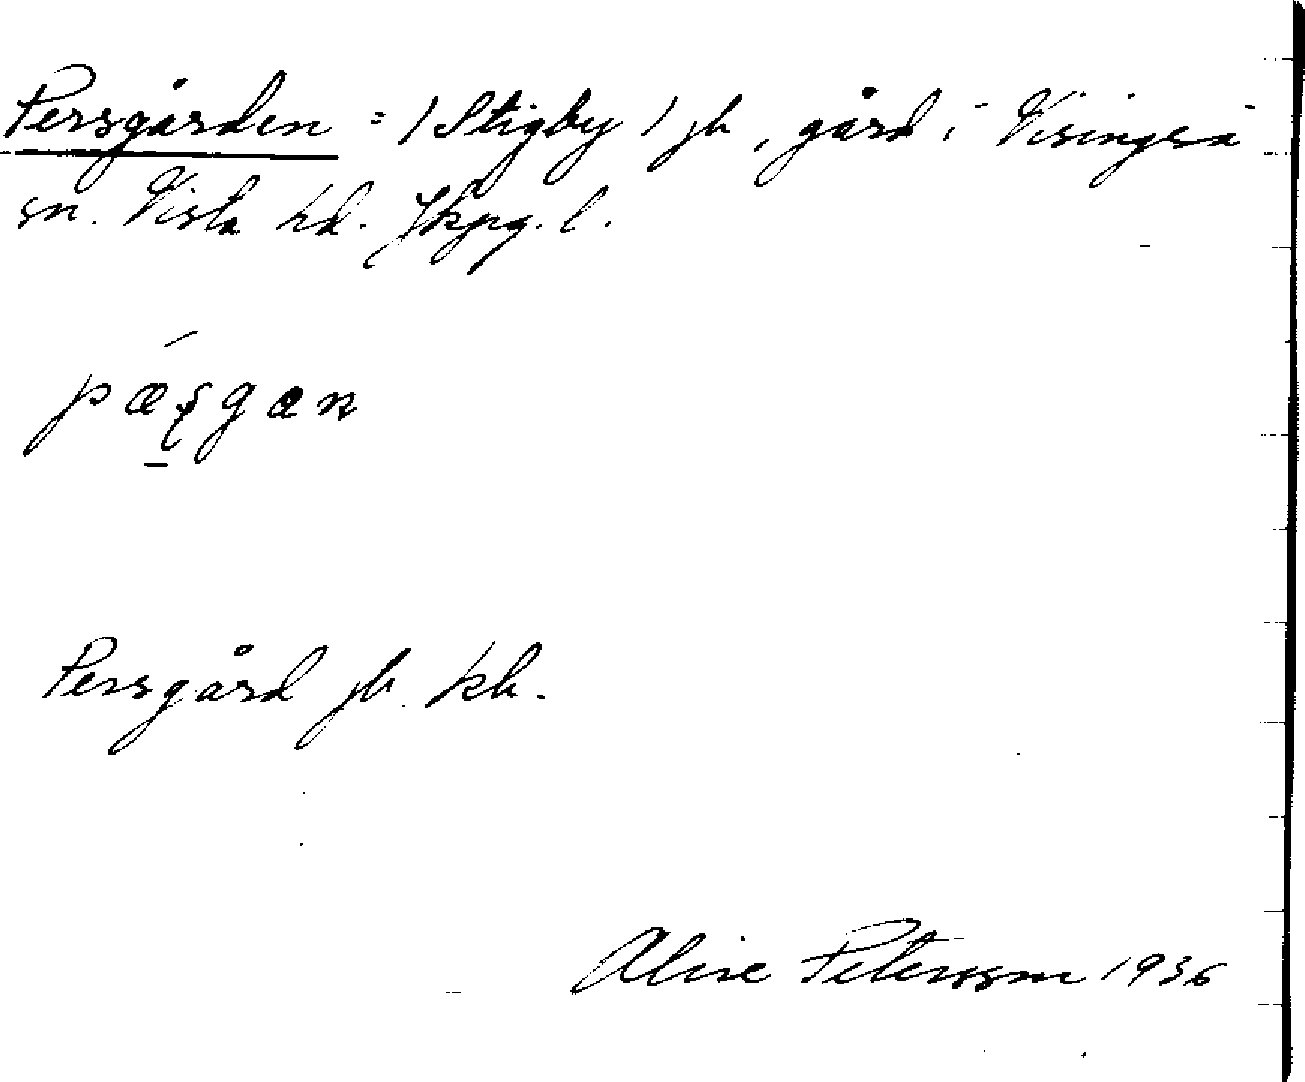 Persgården = /Stigby/ jb, gård i Visingsö
sn. Vista hd. Jkpg. l.
pæʂgæn
Persgård jb. kb.
Alice Petersson 1936